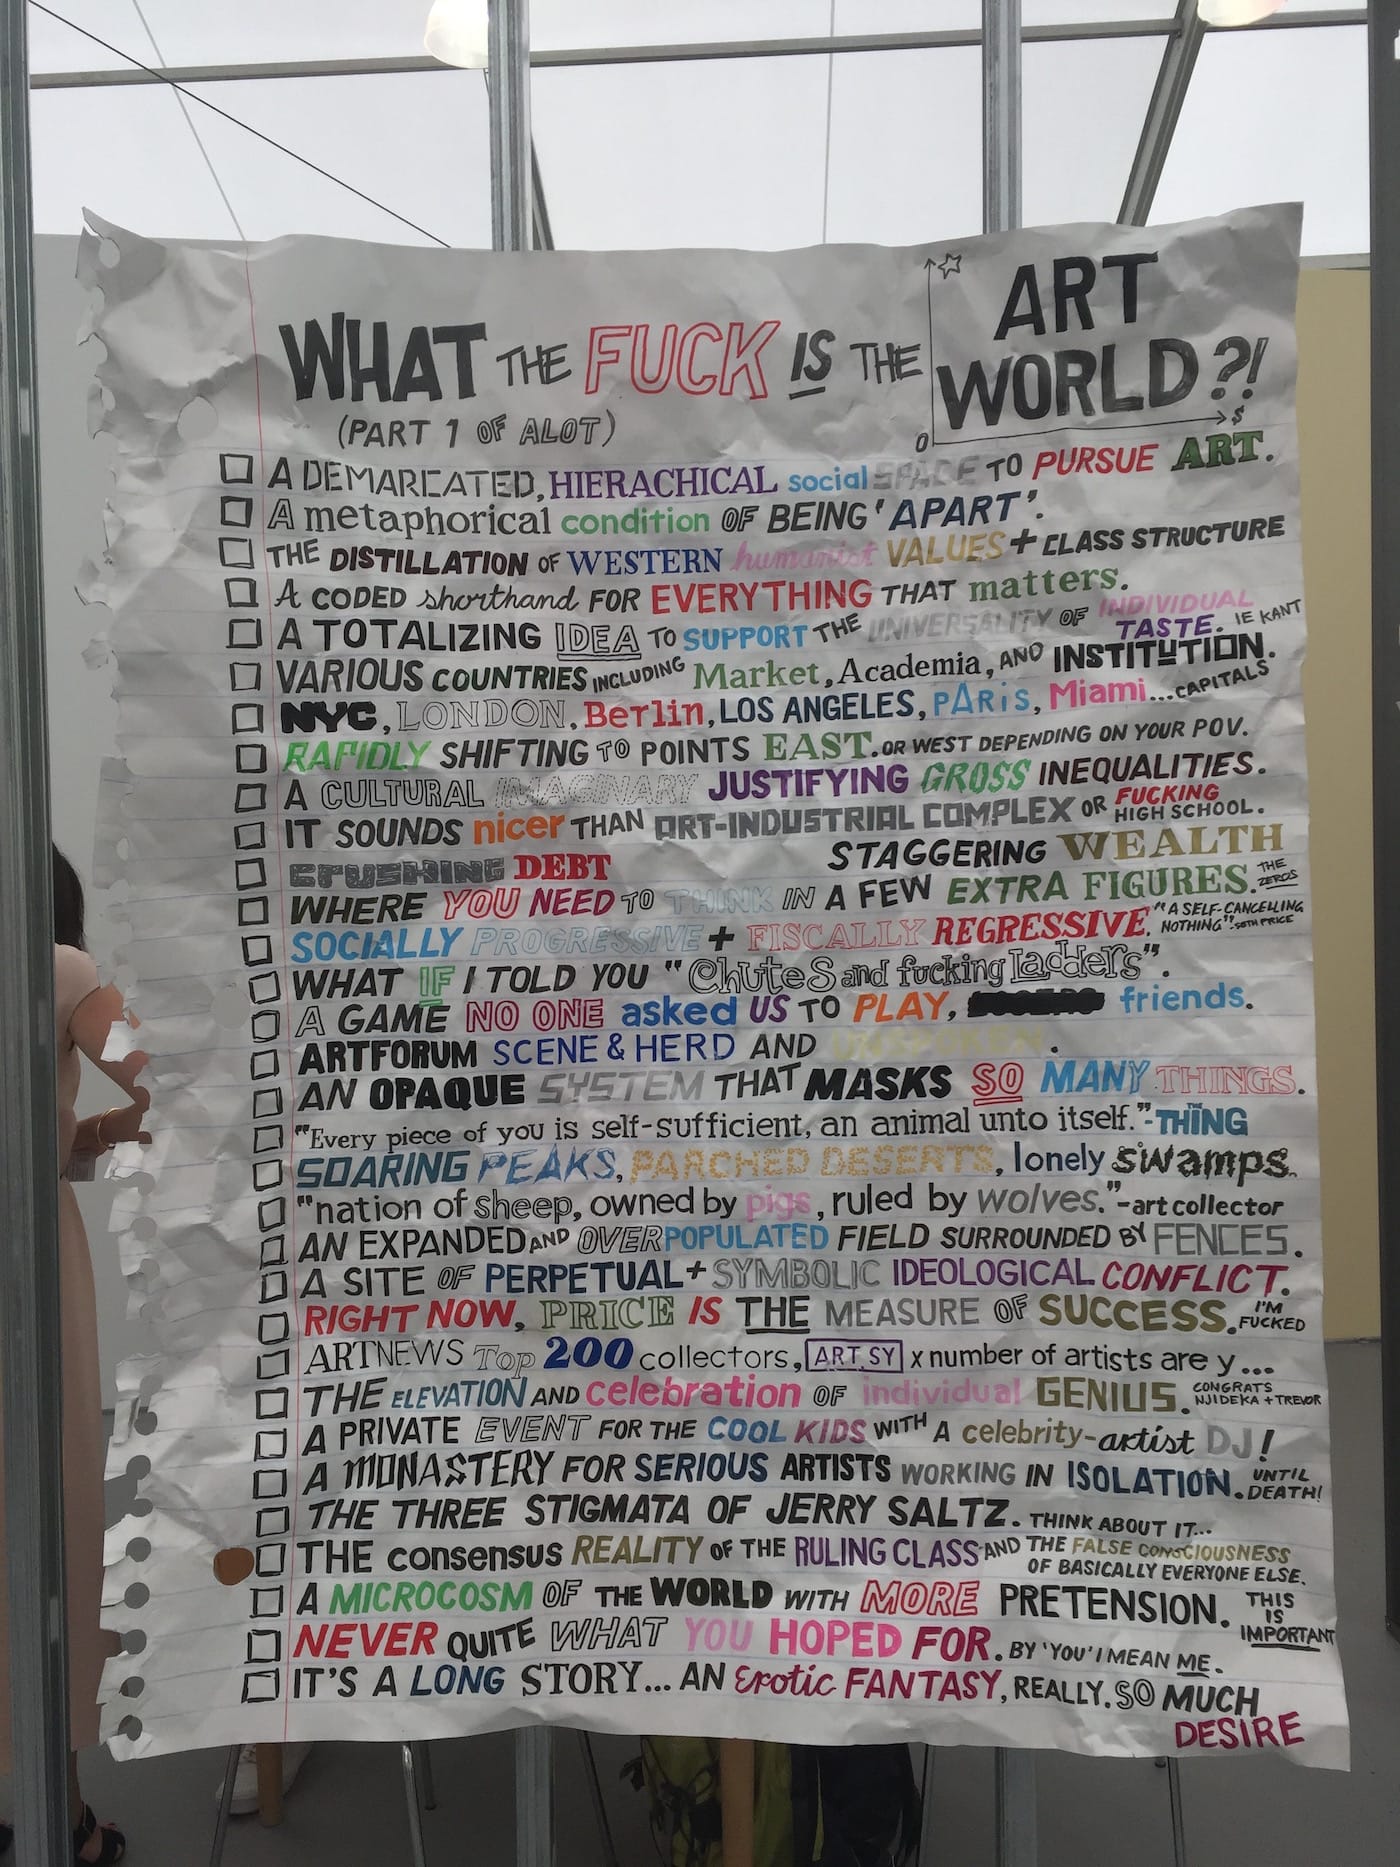 WHAT THE FUCK IS THE ART WORLD?!
0 $
(PART 1 OF ALOT)
A DEMARCATED, HIERACHICAL social SPACE TO PURSUE ART.
A metaphorical condition OF BEING 'APART'.
THE DISTILLATION OF WESTERN humanist VALUES + CLASS STRUCTURE
A CODED shorthand FOR EVERYTHING THAT matters.
A TOTALIZING IDEA TO SUPPORT THE UNIVERSALITY OF INDIVIDUAL TASTE. IE KANT
VARIOUS COUNTRIES INCLUDING Market, Academia, AND INSTITUTION.
NYC, LONDON, Berlin, LOS ANGELES, PARIS, Miami...CAPITALS
RAPIDLY SHIFTING TO POINTS EAST. OR WEST DEPENDING ON YOUR POV.
A CULTURAL IMAGINARY JUSTIFYING GROSS INEQUALITIES.
IT SOUNDS nicer THAN ART-INDUSTRIAL COMPLEX OR FUCKING HIGH SCHOOL.
CRUSHING DEBT STAGGERING WEALTH
WHERE YOU NEED TO THINK IN A FEW EXTRA FIGURES. THE ZEROS
SOCIALLY PROGRESSIVE + FISCALLY REGRESSIVE. "A SELF-CANCELLING NOTHING" -SETH PRICE
WHAT IF I TOLD YOU "Chutes and fucking Ladders".
A GAME NO ONE asked US TO PLAY, friends.
ARTFORUM SCENE & HERD AND UNSPOKEN.
AN OPAQUE SYSTEM THAT MASKS SO MANY THINGS.
"Every piece of you is self-sufficient, an animal unto itself."-THE THING
SOARING PEAKS, PARCHED DESERTS, lonely swamps.
"nation of sheep, owned by pigs, ruled by wolves."-art collector
AN EXPANDED AND OVERPOPULATED FIELD SURROUNDED BY FENCES.
A SITE OF PERPETUAL + SYMBOLIC IDEOLOGICAL CONFLICT.
RIGHT NOW, PRICE IS THE MEASURE OF SUCCESS. I'M FUCKED
ARTNEWS TOP 200 collectors, ART.SY x number of artists are y...
THE ELEVATION AND celebration OF individual GENIUS. CONGRATS NJIDEKA + TREVOR
A PRIVATE EVENT FOR THE COOL KIDS WITH A celebrity-artist DJ!
A MONASTERY FOR SERIOUS ARTISTS WORKING IN ISOLATION. UNTIL DEATH!
THE THREE STIGMATA OF JERRY SALTZ. THINK ABOUT IT...
THE consensus REALITY OF THE RULING CLASS AND THE FALSE CONSCIOUSNESS OF BASICALLY EVERYONE ELSE.
A MICROCOSM OF THE WORLD WITH MORE PRETENSION. THIS IS IMPORTANT
NEVER QUITE WHAT YOU HOPED FOR. BY 'YOU' I MEAN ME.
IT'S A LONG STORY... AN Erotic FANTASY, REALLY. SO MUCH DESIRE